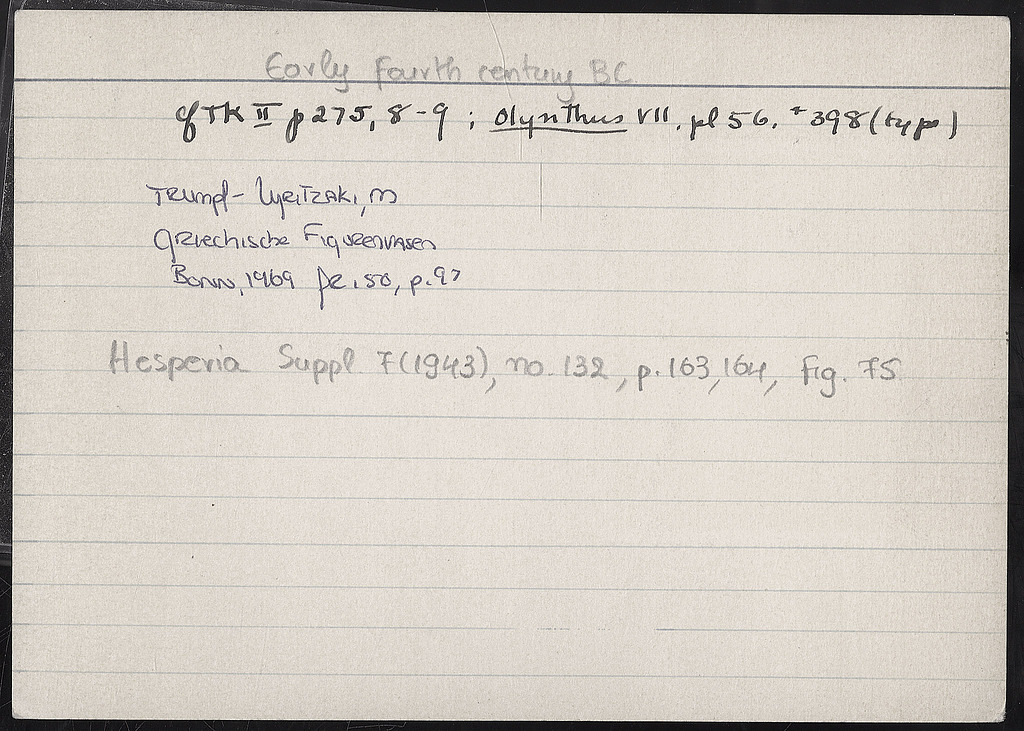 Early Fourth century BC
cf TK II p 275, 8-9 ; Olynthus VII. pl 56. #398 (type)
Trumpf-Lyritzaki, M
Griechische Figurenvasen
Bonn, 1969 pl. 50, p. 97
Hesperia Suppl 7 (1943), no. 132, p. 163, 164, fig. 75